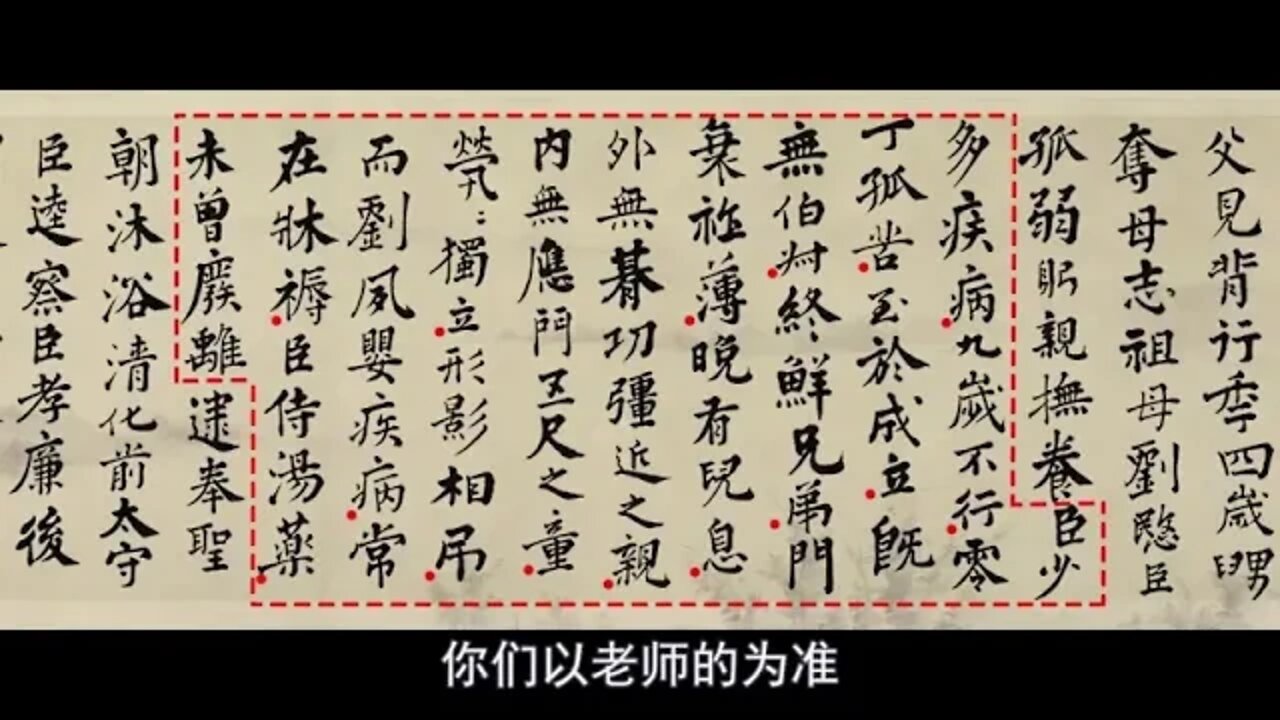 父見背行秊四歲舅
奪母志祖母劉愍臣
孤弱躬親撫養臣少
多疾病九歲不行零
丁孤苦至於成立既
無伯叔終鮮兄弟門
衰祚薄晚有兒息
外無朞功彊近之親
内無應門五尺之童
煢:獨立形影相吊
而劉夙嬰疾病常
在牀褥臣侍湯藥
未曾廢離逮奉聖
朝沐浴清化前太守
臣逵察臣孝廉後
你们以老师的为准